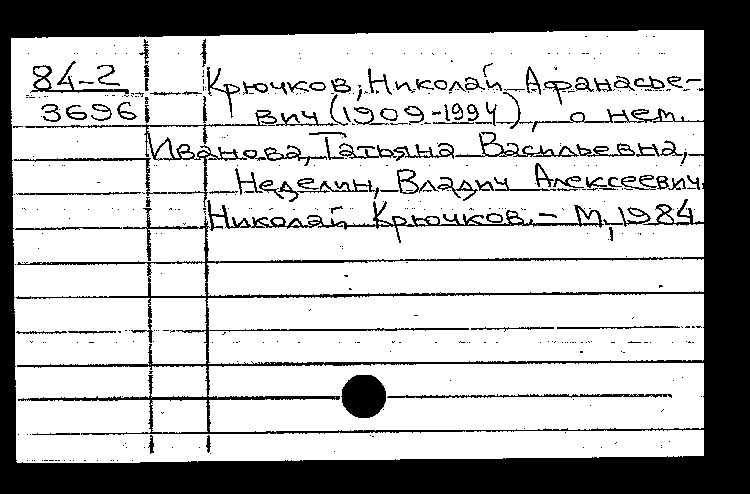 84-2
3696
Крючков, Николай Афанасье-
вич (1909-1994), о нем.
Иванова, Татьяна Васильевна,
Неделин, Владич Алексеевич.
Николай Крючков. - М, 1984